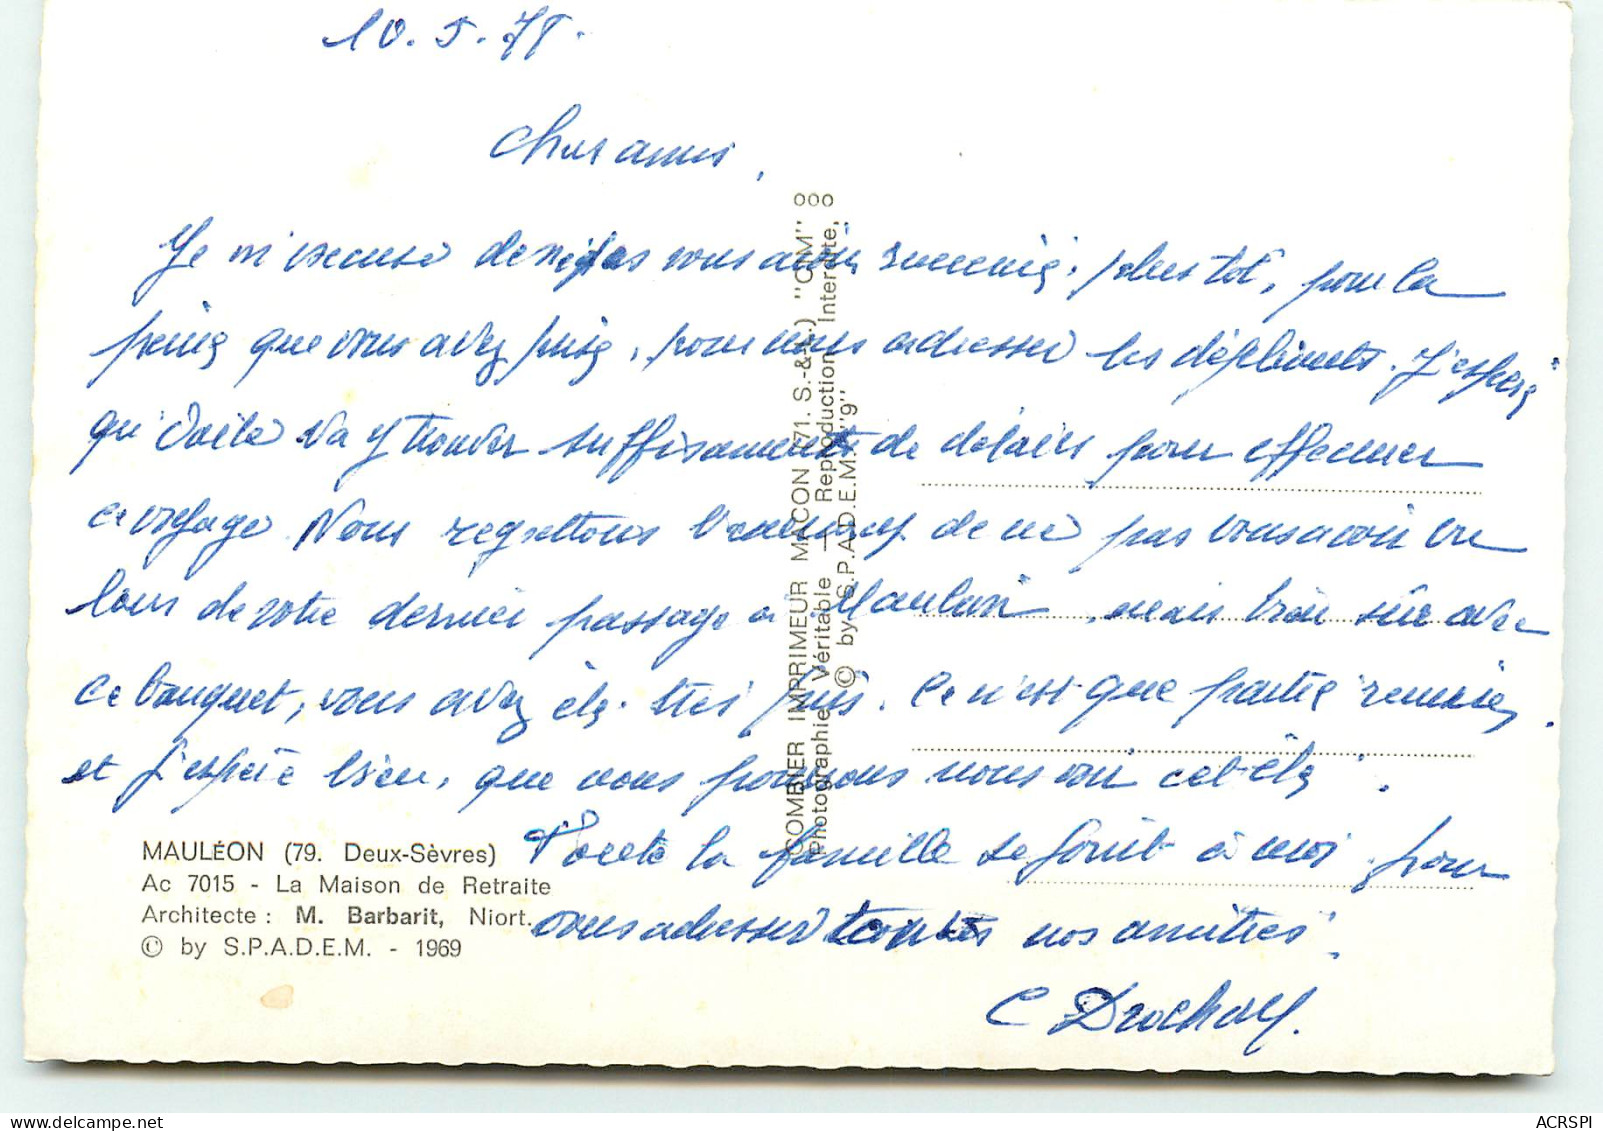 10. 5. 71.
Chers amis,
Je m'excuse de ne pas vous avoir remercié, plus tôt, pour la
peine que vous avez prise, pour nous adresser les dépliants. J'espère
qu'Odile va y trouver suffisamment de détails pour effectuer
ce voyage. Nous regrettons beaucoup de ne pas vous avoir vu
lors de votre dernier passage à Mauléon, mais bien sûr avec
ce bouquet, vous avez été très pris. Ce n'est que partie remise,
et j'espère bien, que nous pourrons nous voir cet été.
Toute la famille se joint à moi pour
vous adresser toutes nos amitiés.
C
MAULÉON (79. Deux-Sèvres)
Ac 7015 - La Maison de Retraite
Architecte : M. Barbarit, Niort.
© by S.P.A.D.E.M. - 1969
COMBIER IMPRIMEUR MACON (71. S.-&-L.) "CIM"
Photographie Véritable — Reproduction Interdite,
© by S.P.A.D.E.M. "9"
ACRSPI